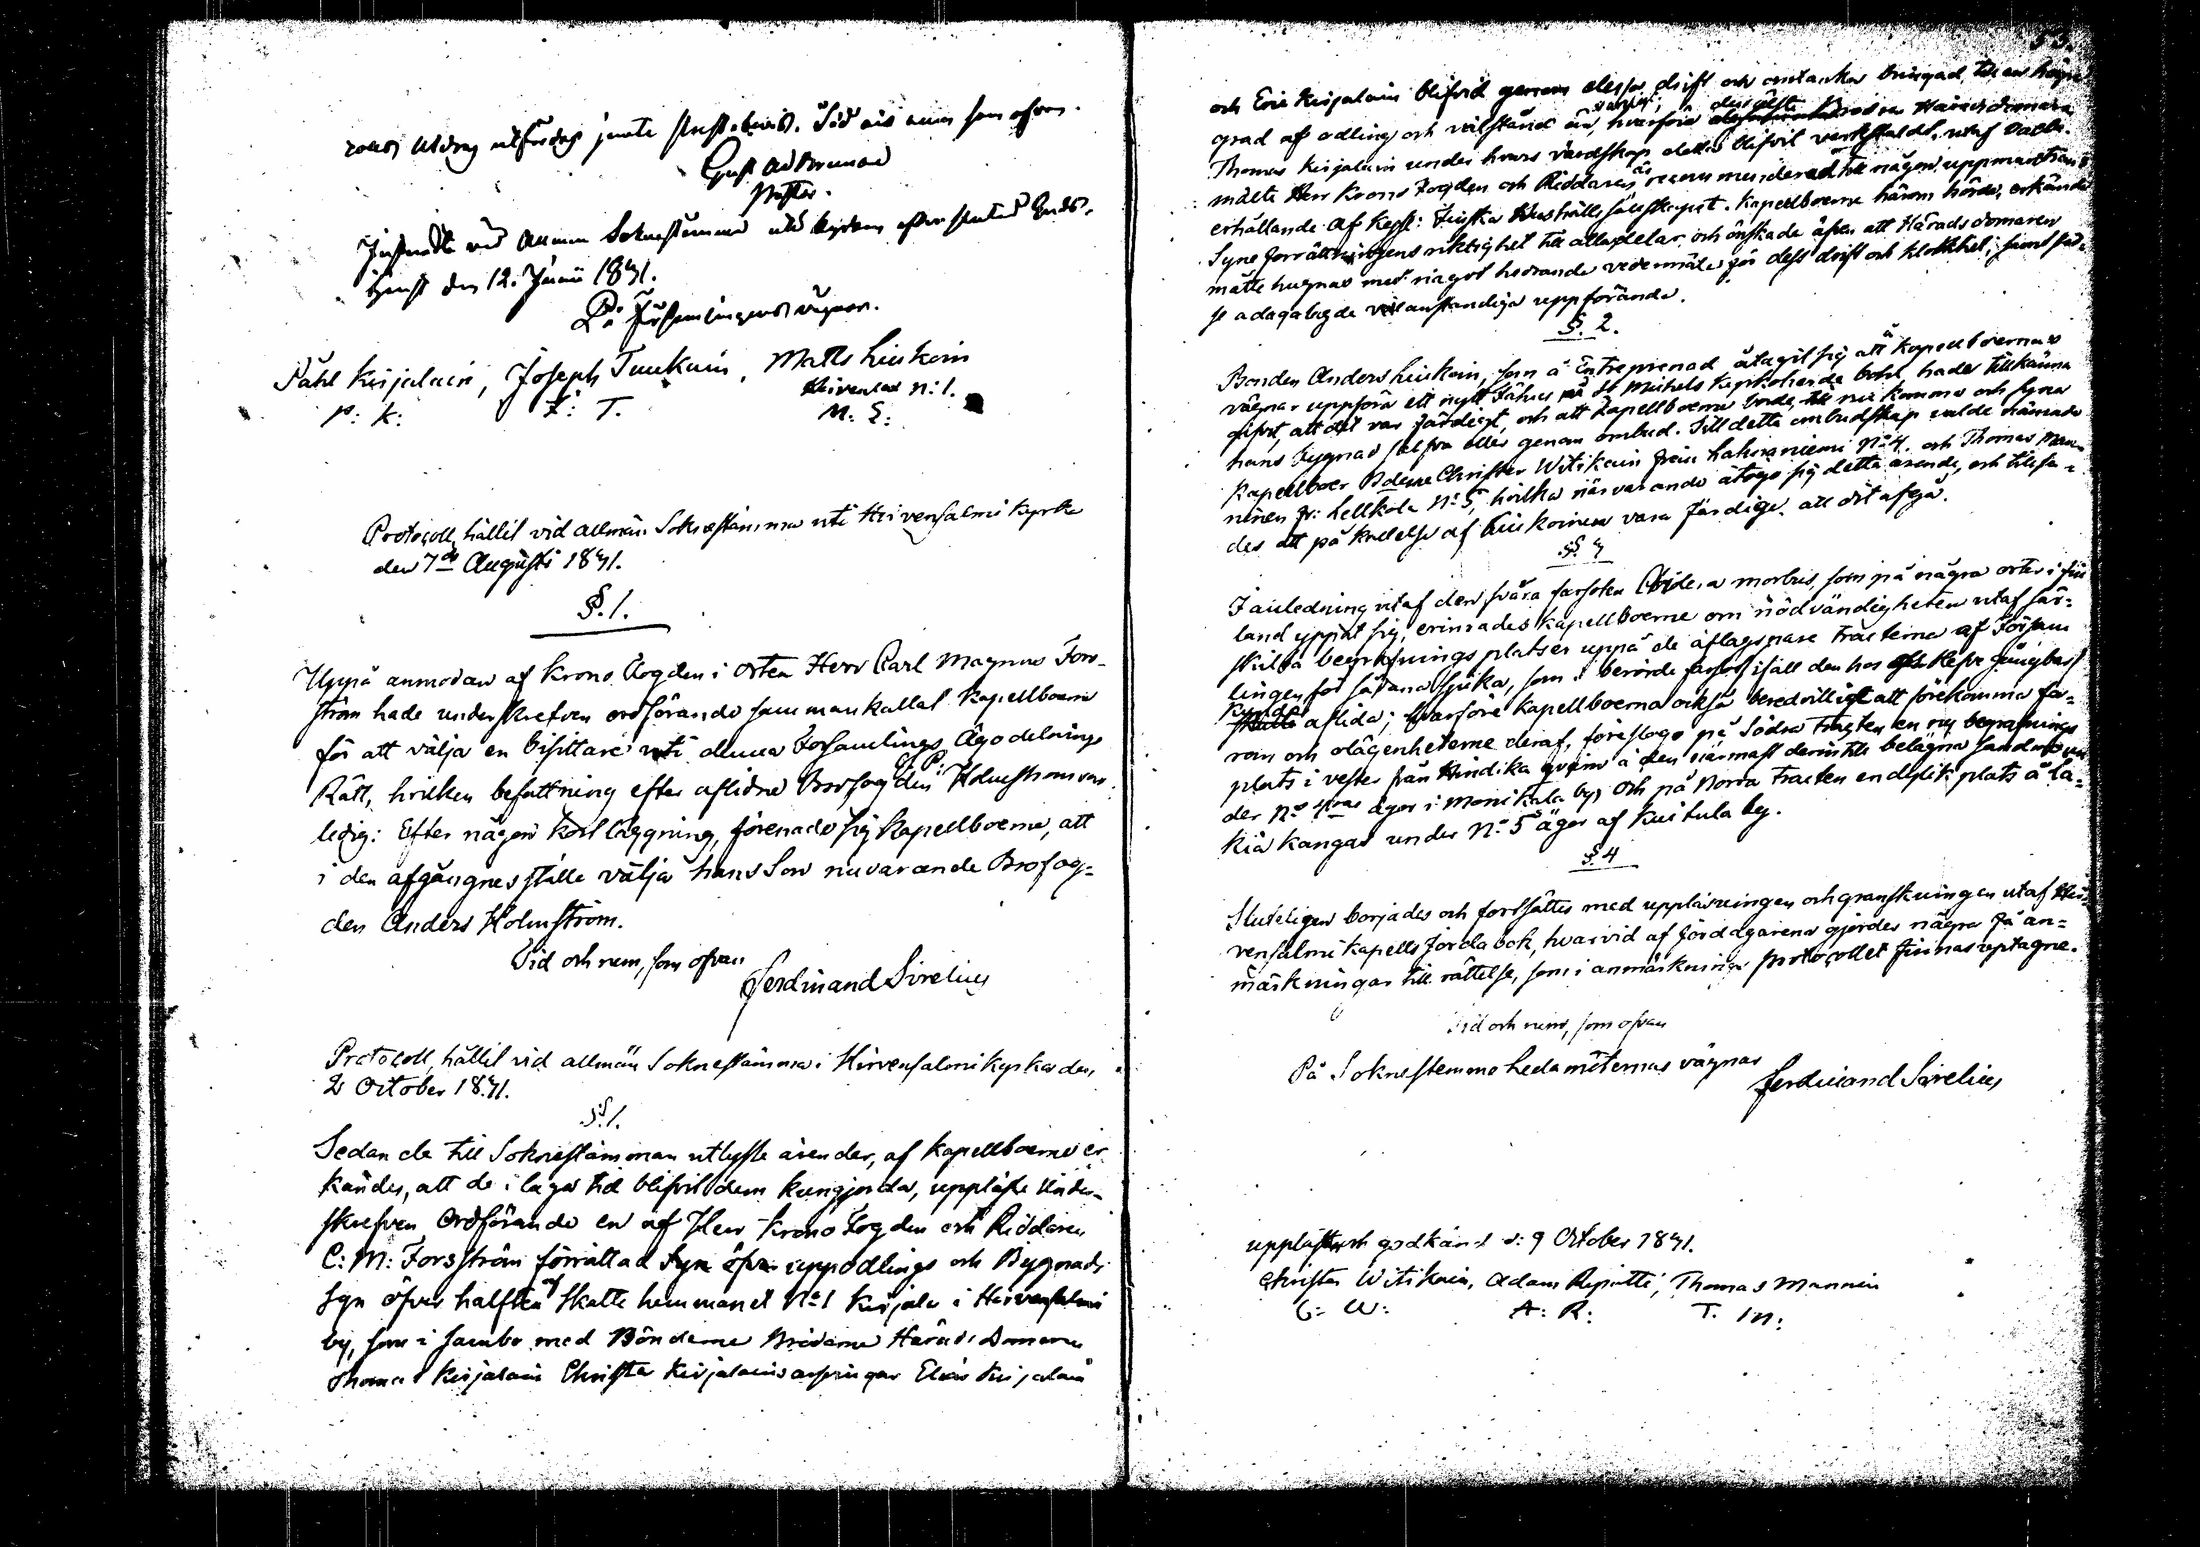 utdrag utfärdas jemte
Gust. Ad. Brunou
Justeradt vid Allmän Soknestämma uti kyrkan efter slutad Guds-
tjenst den 12. Junii 1831.
På Församlingens vägnar.
Påhl Kirjalain, Joseph Tuukain, Matts Liukoin
Hirvensal N:1.
P: K: J: T. M: L:
Protocoll, hållit vid allmän Soknestämma uti Hirvensalmi kyrka
den 7de Augusti 1831.
§. 1.
Uppå anmodan af Krono Fogden i Orten Herr Carl Magnus Fors-
ström hade underskrefven ordförande sammankallat kapellboerne
för att välja en bisittare uti denna Församlings Ägodelnings
Rätt, hvilken befattning efter aflidne Brofogden P: Holmström var
ledig: Efter någon kort läggning, förenade sig Kapellboerne, att
i den afgångnes ställe välja hans Son nuvarande Brofog-
den Anders Holmström.
Tid och rum, som ofvan
Ferdinand Sirelius
Protocoll, hållit vid allmän Soknestämma i Hirvensalmi kyrka den
2 October 1831.
§. 1.
Sedan de till Soknestämman utlyste ärender, af kapellboerne er-
kändes, att de i laga tid blifvit dem kungjorda, uppläste Under-
skrefven Ordförande en af Herr Krono Fogden och Riddaren
C: M: Forsström förrättad Syn öfver uppodlings och Bygnads
syn öfver halften af Skatte hemmanet No 1 Kirjala i Hirvensalmi
by, som i sambo med Bönderne Bröderne Härads Domaren
Thomas Kirjalain Christer Kirjalains arfvingar Elias Kirjalain
53.
och Eric Kirjalain blifvid genom dessas drift och omtanka bringad till en högre
grad af odling och välstånd än, hvarföre desutom Brodren Häradsdomaren
Thomas Kirjalain under hvars värdskap detta blifvit verkstäldt, utaf
mälte Herr Krono Fogden och Riddaren är recommenderad till någon uppmuntran
erhållande af Kejs: Finska Hushålls sällskapet. Kapellboerne härom hörde, erkände
Syne förrättningens riktighet till alla delar och önskade äfven att Häradsdomaren
måtte hugnas med något hedrande vedermäle för dess drift och klokhet, samt
se adagalagde väl anständiga uppförande.
§. 2.
Bonden Anders Liukoin, som å Entreprenad åtagit sig att å kapellboernas
vägnar uppföra ett nytt Fähus på St Michels Kyrkoherde bohl hade tillkänna
gifvit, att det var färdigt, och att kapellboerne borde komma och syna
hans bygnad sielfva eller genom ombud. Till detta ombudskap valde närvarande
Kapellboer Bönderne Christer Witikain från Lahnaniemi No 4. och Thomas Man-
ninen fr: Hellkola No 5, hvilka närvarande åtogo sig detta ärende, och utlofva-
des att på kallelse af Liukoinen vara färdige att dit afgå.
§. 3
I anledning utaf den svåra farsoten Cholera morbus, som på några orter i Fin-
land yppat sig, erinrades kapellboerne om nödvändigheten utaf sär-
skilta begrafnings platser uppå de aflägsnare trakterne af Försam-
lingen för sådana sjuka, som i berörde farsot ifall den hos
aflida; hvarföre kapellboerna också beredvilligt att förekomma fa-
ran och olägenheterne deraf, föreslogo på Södra trakten en ny begrafnings
plats i vester från Hindika å den närmast derintill belägna sandmo un-
der No ägor i Monikala by, och på Norra Trakten en dylik plats å La-
kia kangas under No 5 ägor af Kuitula by.
§. 4
Sluteligen börjades och fortsattes med uppläsningen och granskningen utaf Hir-
vensalmi kapells Jordabok, hvarvid af jordägarena gjordes några få an-
märkningar till rättelse, som i anmärknings protocollet finnas uptagne.
Tid och rum, som ofvan
På Soknestemmo Ledamöternas vägnar
Ferdinand Sirelius
uppläst och godkändt d: 9 October 1831.
Christer Witikain, Adam Ripatti, Thomas Mannin
C: W: A: R: T. M: